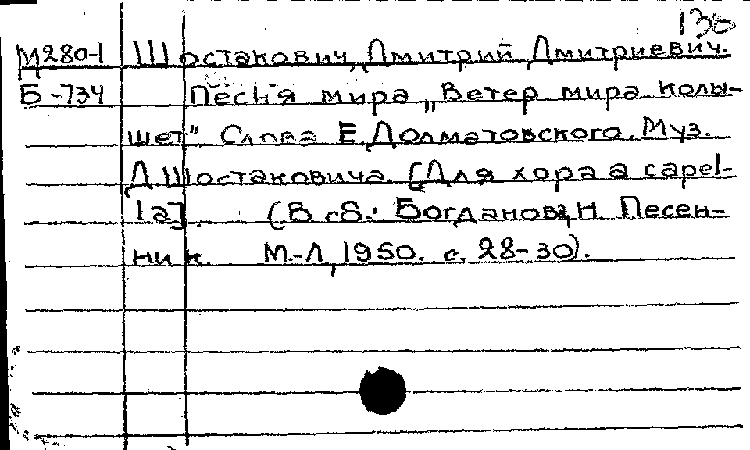 130
М280-1 Шостакович, Дмитрий Дмитриевич.
Б-734 Песня мира „Ветер мира колы-
шет" Слова Е.Долматовского. Муз.
Д.Шостаковича. [Для хора a capel-
la]. (В сб.: Богданова, Н. Песен-
ник. М.-Л, 1950. с. 28-30).